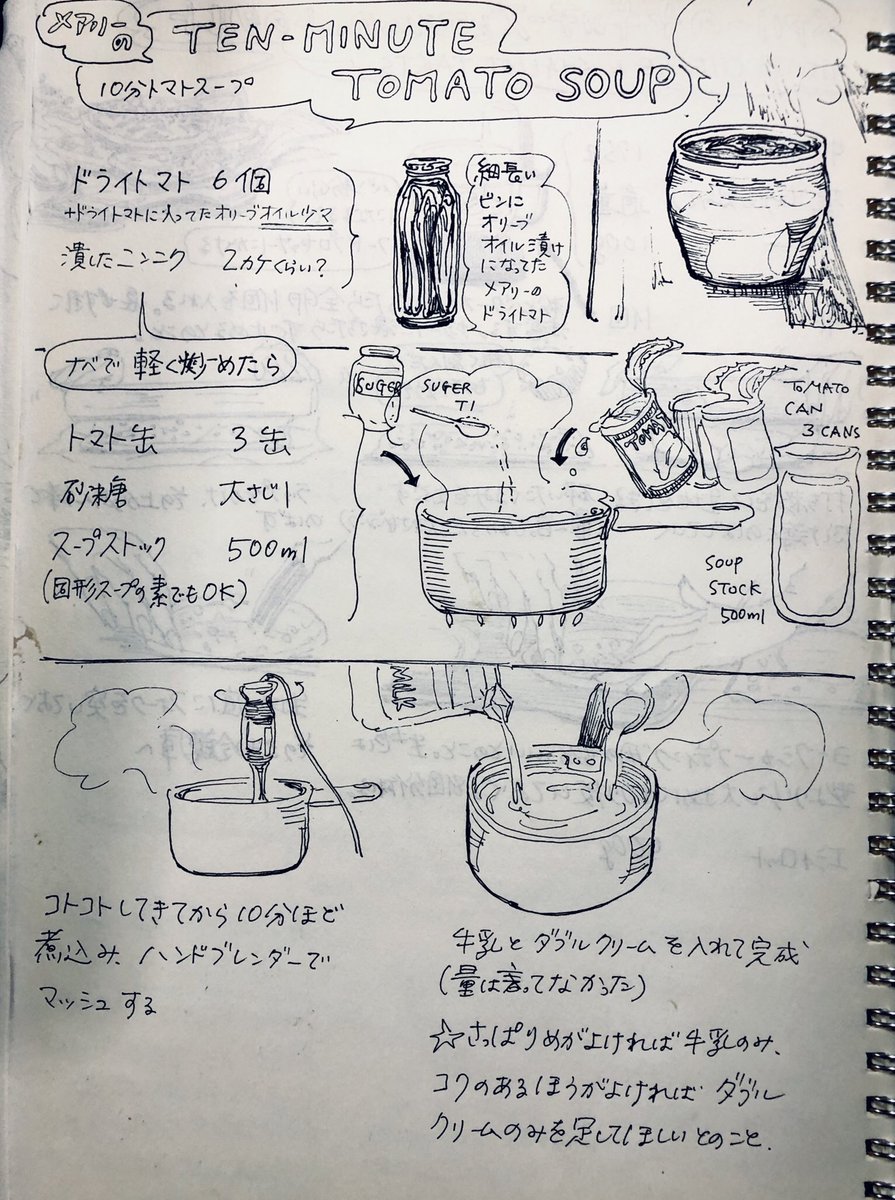 メアリーの
TEN-MINUTE
TOMATO SOUP
10分トマトスープ
ドライトマト 6個
+ドライトマトに入ってたオリーブオイル少々
潰したニンニク 2カケくらい?
細長い
ビンに
オリーブ
オイル漬け
になってた
メアリーの
ドライトマト
ナベで軽く炒めたら
トマト缶 3缶
砂糖 大さじ1
スープストック 500ml
(固形スープの素でもOK)
SUGER
SUGER
T1
TOMATO
CAN
3 CANS
SOUP
STOCK
500ml
MILK
コトコトしてきてから10分ほど
煮込み、ハンドブレンダーで
マッシュする
牛乳とダブルクリームを入れて完成
(量は言ってなかった)
☆さっぱりめがよければ牛乳のみ、
コクのあるほうがよければ ダブル
クリームのみを足してほしいとのこと.